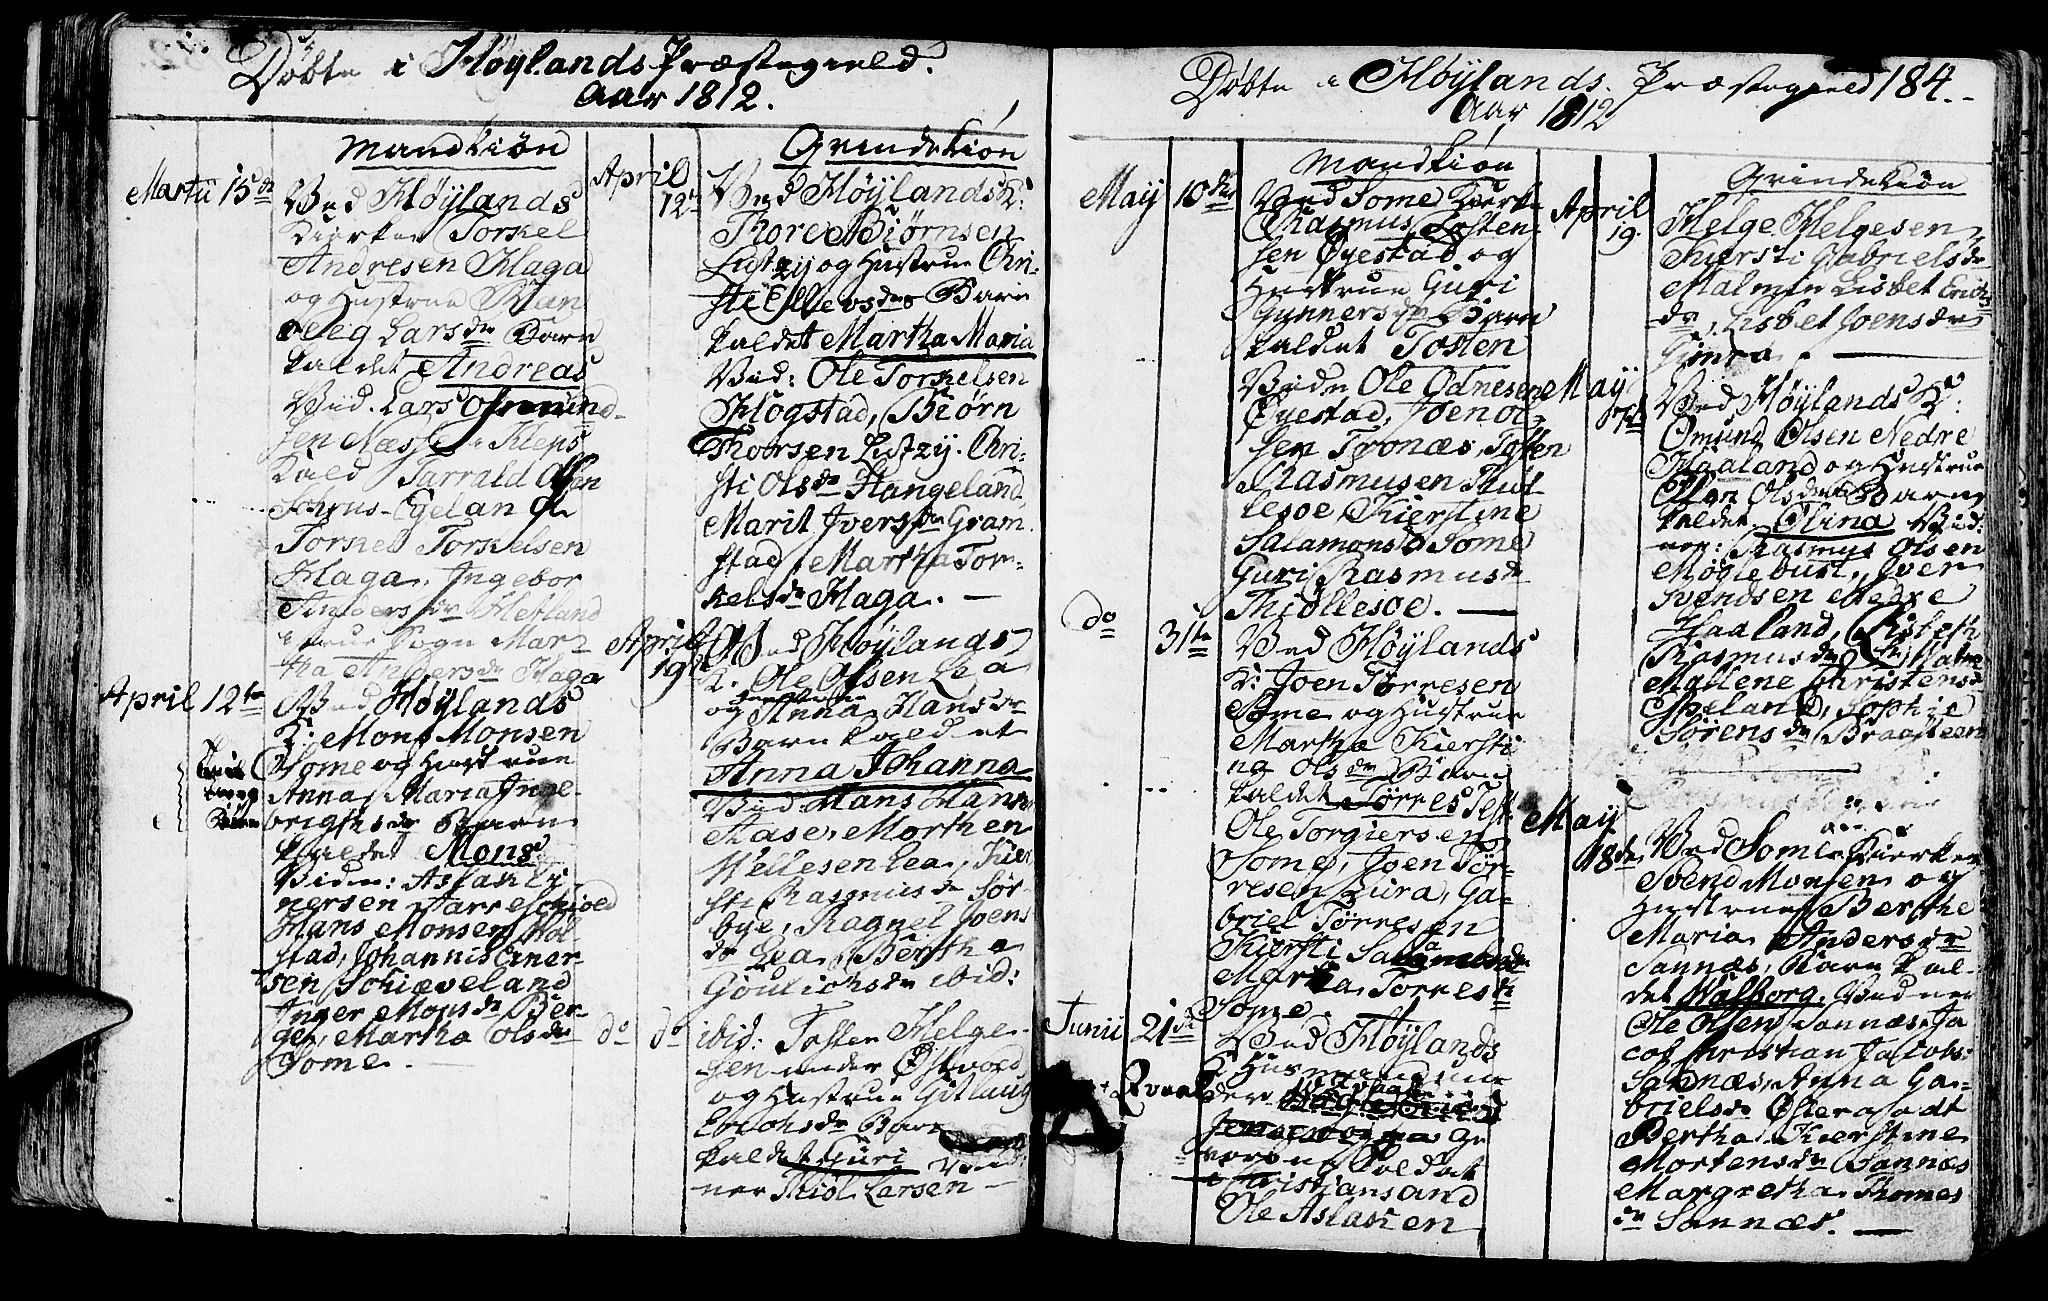 Døbte i Høylands Præstegield.
Aar 1812.
Mandkiøn
Martii 15de
Ved Høylands
Kierke Torkel
Andresen Haga
og Hustrue
Larsdr Barn
kaldet Andreas
Vid. Lars Osmund-
sen Næss Kleps
Kald Tarrald Olsen
Egeland
Torkel Torkelsen
Haga, Ingebor
Andersdr Hetland
Sogn Mar-
tha Andersdr Haga
April 12te
Ved Høylands
K: Mons Monsen
Some og Hustrue
Anna Maria Inge-
brigtsdr Barn
kaldet Mons
Vidn: Aslak
nersen
Hans Monsen Hol-
stad, Johannis Einer-
sen Schiæveland
Inger Monsdr Ber-
ge, Martha Olsdr
Some.
Qvindekiøn
April 12te
Ved Høylands K:
Thore Biørnsen
Lutzij og Hustrue Chri-
sti Barn
kaldet Martha Maria
Vid: Ole Torkelsen
Hogstad, Biørn
Thorsen Lutzij. Chri-
sti Olsdr Hangeland
Marit Iversdr Gram-
stad, Martha Tor-
kelsdr Haga. —
April 19de
Ved Høylands
K. Ole Olsen Lea
og Hustrue Anna Hansdr
Barn kaldet
Anna Johanna
Vid Hans Hans
Aase, Morthen
Wellesen Lea, Kier-
sti Rasmusdr Sør-
bye, Ragnel Joens
dr Lea, Berthe
Goulichsdr ibid:
do do
ibid: Tosten Helge-
sen under Østvoed
og Hustrue Gitlaug
Erichsdr Barn
kaldet Guri Vid-
ner Thiøl Larsen —
Døbte i Høylands Præstegield 184.
Aar 1812
Mandkiøn
May 10de
Ved Some Kierke
Rasmus Tosten-
sen Øyestad og
Hustrue Guri
Gunnersdr Barn
kaldet Tosten
Vidn Ole Odnesen
Øyestad, Joen Ol-
sen Tronæs, Tosten
Rasmusen Thiøl-
lesoe, Kierstine
Salamonsd Some
Guri Rasmusdr
Thiøllesoe. —
do 31te
Ved Høylands
K: Joen Tørresen
Some og Hustrue
Martha Kiersti
na Olsdr Barn
kaldet Tørres Test:
Ole Torgiersen
Some, Joen Tør-
resen Lura, Ga-
briel Tørresen
Kiersti Salamonsdr
Martha Torresdr
Some.
Junii 21de
Ved Høylands
K Husmand un-
der
kaldet
Christiansand
Ole Aslaksen
Qvindekiøn
April 19.
Helge Helgesen
Kiersti Gabrielsdr
Malmin Lisbet Erichs
dr, Lisbet Joensdr
Gimra. —
May 7de
Ved Høylands K:
Omund Olsen Nedre
Haaland og Hustrue
Ellen Olsdr Barn
kaldet Olina Vid:
ner: Rasmus Olsen
Møgiebust, Iver
Svendsen Nedre
Haaland, Lisbeth
Rasmusdr
Mallene Christensdr
Espeland, Sophie
Sørensdr Braasteen
May 18de
Ved Some Kierke
Svend Monsen og
Hustrue Berthe
Maria Andersdr
Sannæs, Barn kal-
det Walborg. Vidner
Ole Olsen Sannæs, Ja
cob Christian Jacobs:
Sannæs, Anna Ga-
brielsdr Østeraadt
Bertha Kierstine
Mortensdr Sannæs
Margretha Thomes
dr Sannæs. —